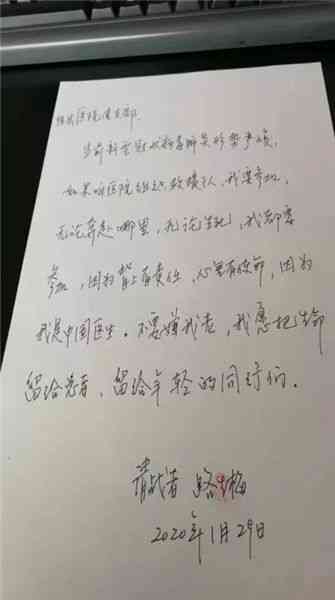 医院党支部:
当前新型冠状病毒肺炎形势严峻,
如果咱医院组织救援队,我要参加,
无论奔赴哪里,无论生死,我都要
参加,因为背上有责任,心里有使命,因为
我是中国医生。不要嫌我老,我愿把生命
留给患者,留给年轻的同行们。
请战者 路梅
2020年1月29日